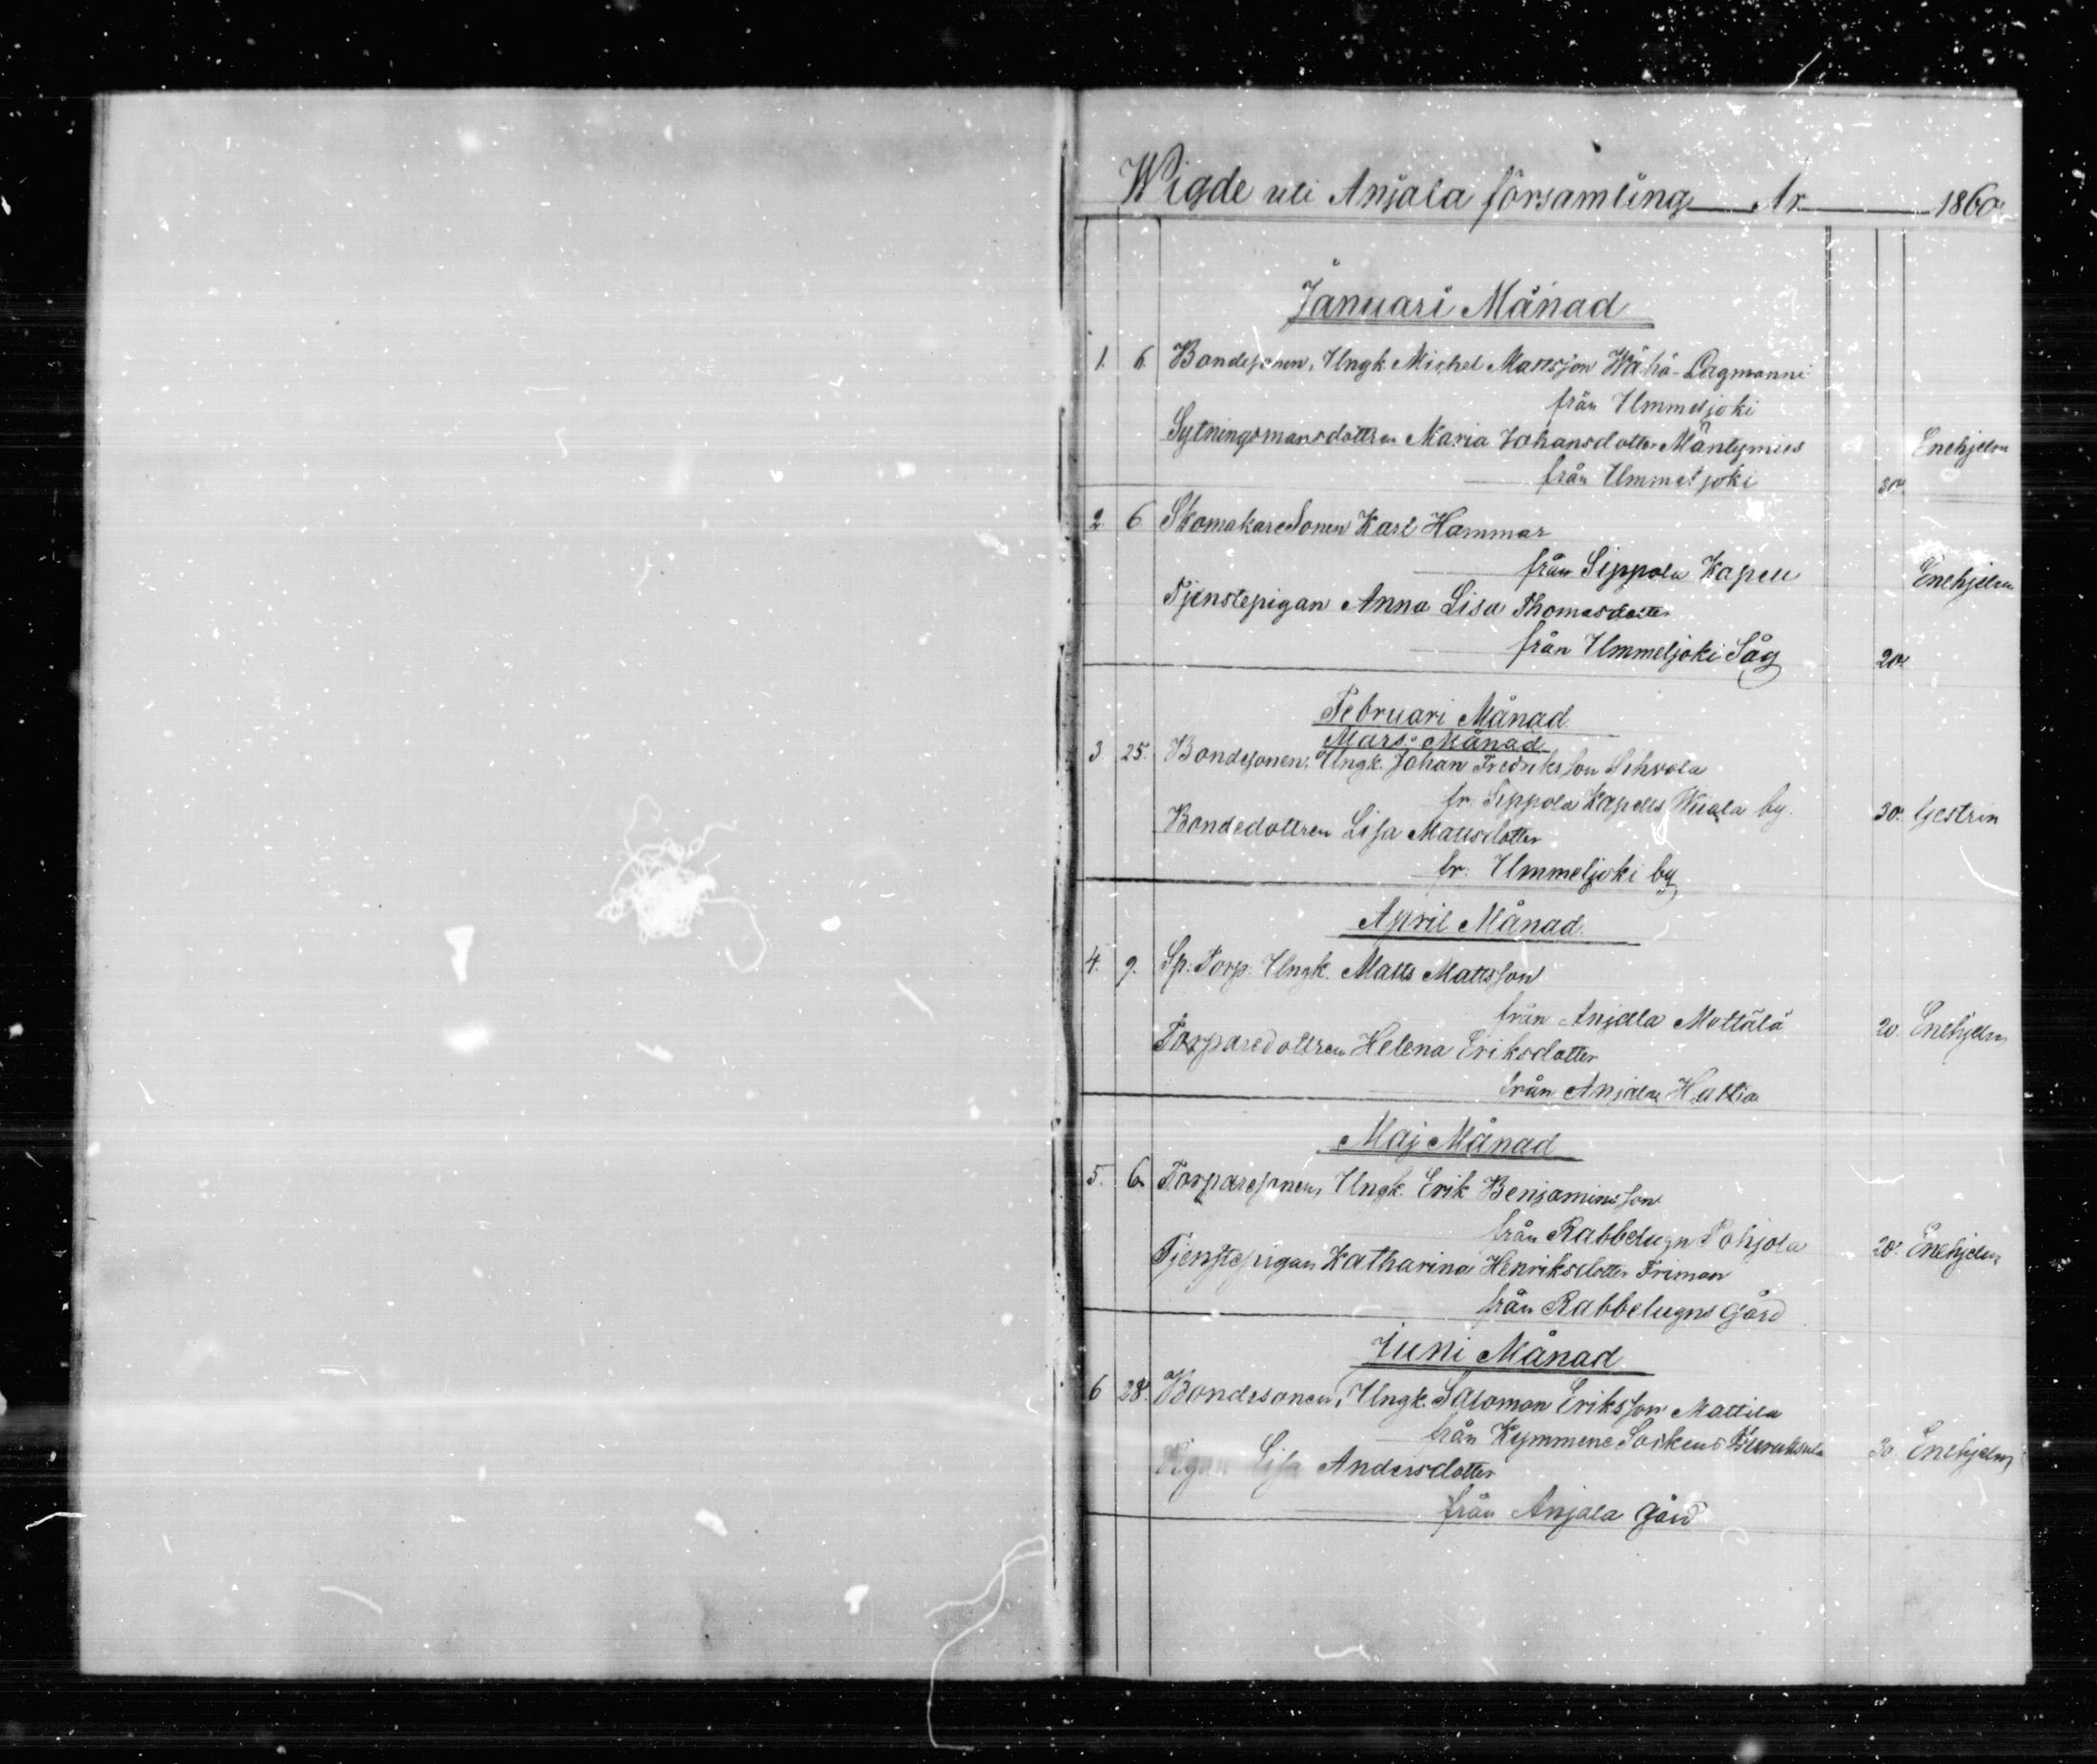 Wigde uti Anjala församling År 1860
Januari Månad
1. 6. Bondesonen, Ungk. Michel Mattsson Wähä-Lagmanni
från Ummeljoki
Sytningsmansdottren Maria Johansdotter Mäntymies Enehjelm
från Ummeljoki 30.
2 6 Skomakaresonen Karl Hammar
från Sippola Kapell Enehjelm
Tjenstepigan Anna Lisa Thomasdotter
från Ummeljoki Såg 20.
Februari Månad
Mars Månad
3. 25. Bondesonen, Ungk. Johan Fredriksson Sihvola
fr. Sippola Kapells by. 30. Gestrin
Bondedottren Lisa Mattsdotter
fr. Ummeljoki by
April Månad.
4. 9. Sp. Torp. Ungk. Matts Mattsson
från Anjala Mettälä 20. Enehjelm
Torparedottren Helena Eriksdotter
från Anjala Hattia
Maj Månad
5. 6. Torparesonen, Ungk. Erik Benjaminsson
från Rabbelugn Pohjola 20. Enehjelm
Tjenstepigan Katharina Henriksdotter Friman
från Rabbelugns Gård
Juni Månad
6 28. Bondesonen, Ungk. Salomon Eriksson Mattila
från Kymmene Sockens 30 Enehjelm
Pigan Lisa Andersdotter
från Anjala Gård